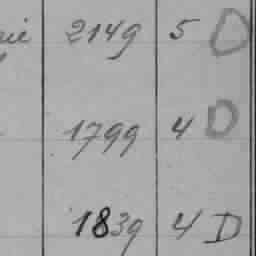 2149 5 D
1799 4 D
1839 4 D